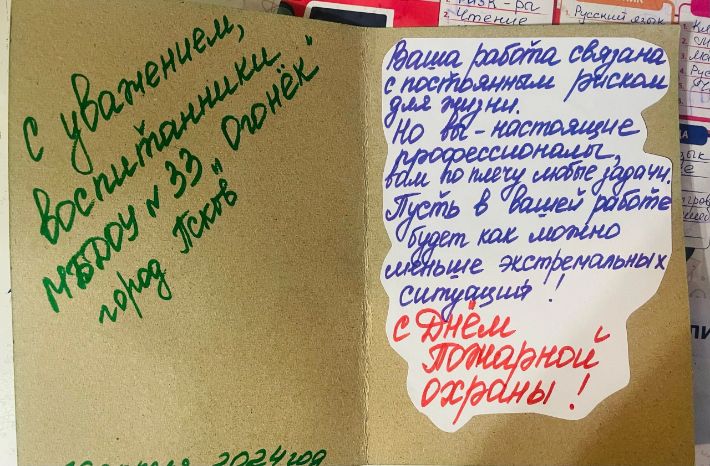 С уважением,
воспитанники
МБДОУ № 33 „Огонёк"
город Псков
2024 год
Ваша работа связана
с постоянным риском
для жизни.
Но вы - настоящие
профессионалы,
вам по плечу любые задачи.
Пусть в вашей работе
будет как можно
меньше экстремальных
ситуаций!
С Днём
Пожарной
охраны!
Чтение
Русский язык